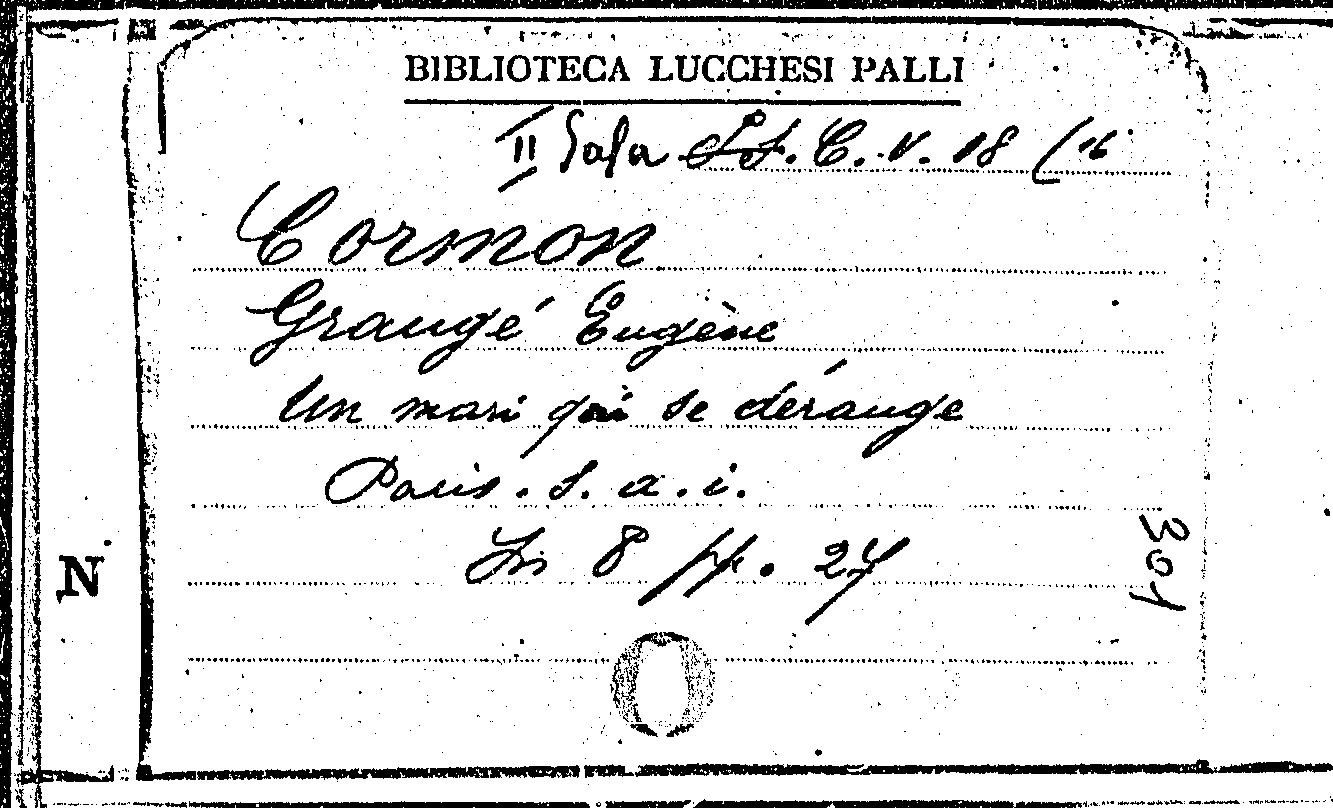 BIBLIOTECA LUCCHESI PALLI
II Sala C. V. 18 (16
Cormon
Grangé Eugène
Un mari qui se dérange
Paris. s. a. i.
In 8 pp. 27
301
N